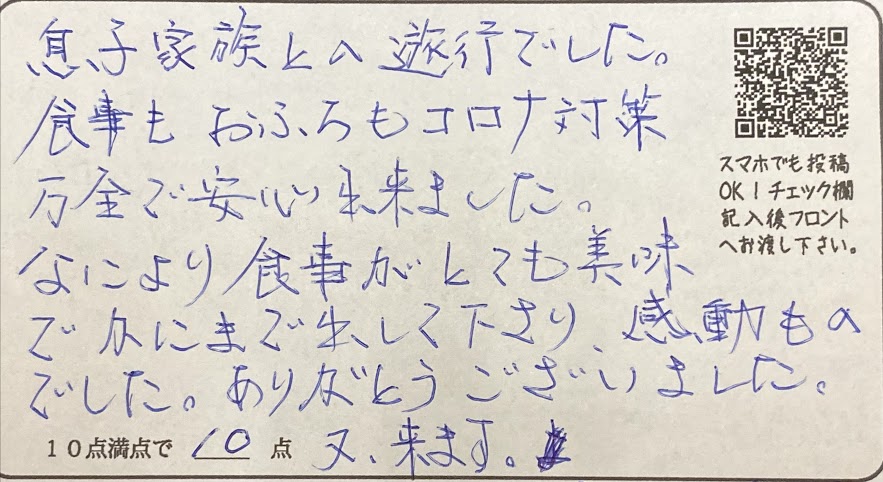 息子家族との遊行でした。
食事も おふろもコロナ対策
万全で安心出来ました。
なにより食事がとても美味
でカにまで出して下さり、感動もの
でした。ありがとうございました。
10点満点で 10 点 又、来ます。
スマホでも投稿
OK！チェック欄
記入後フロント
へお渡し下さい。